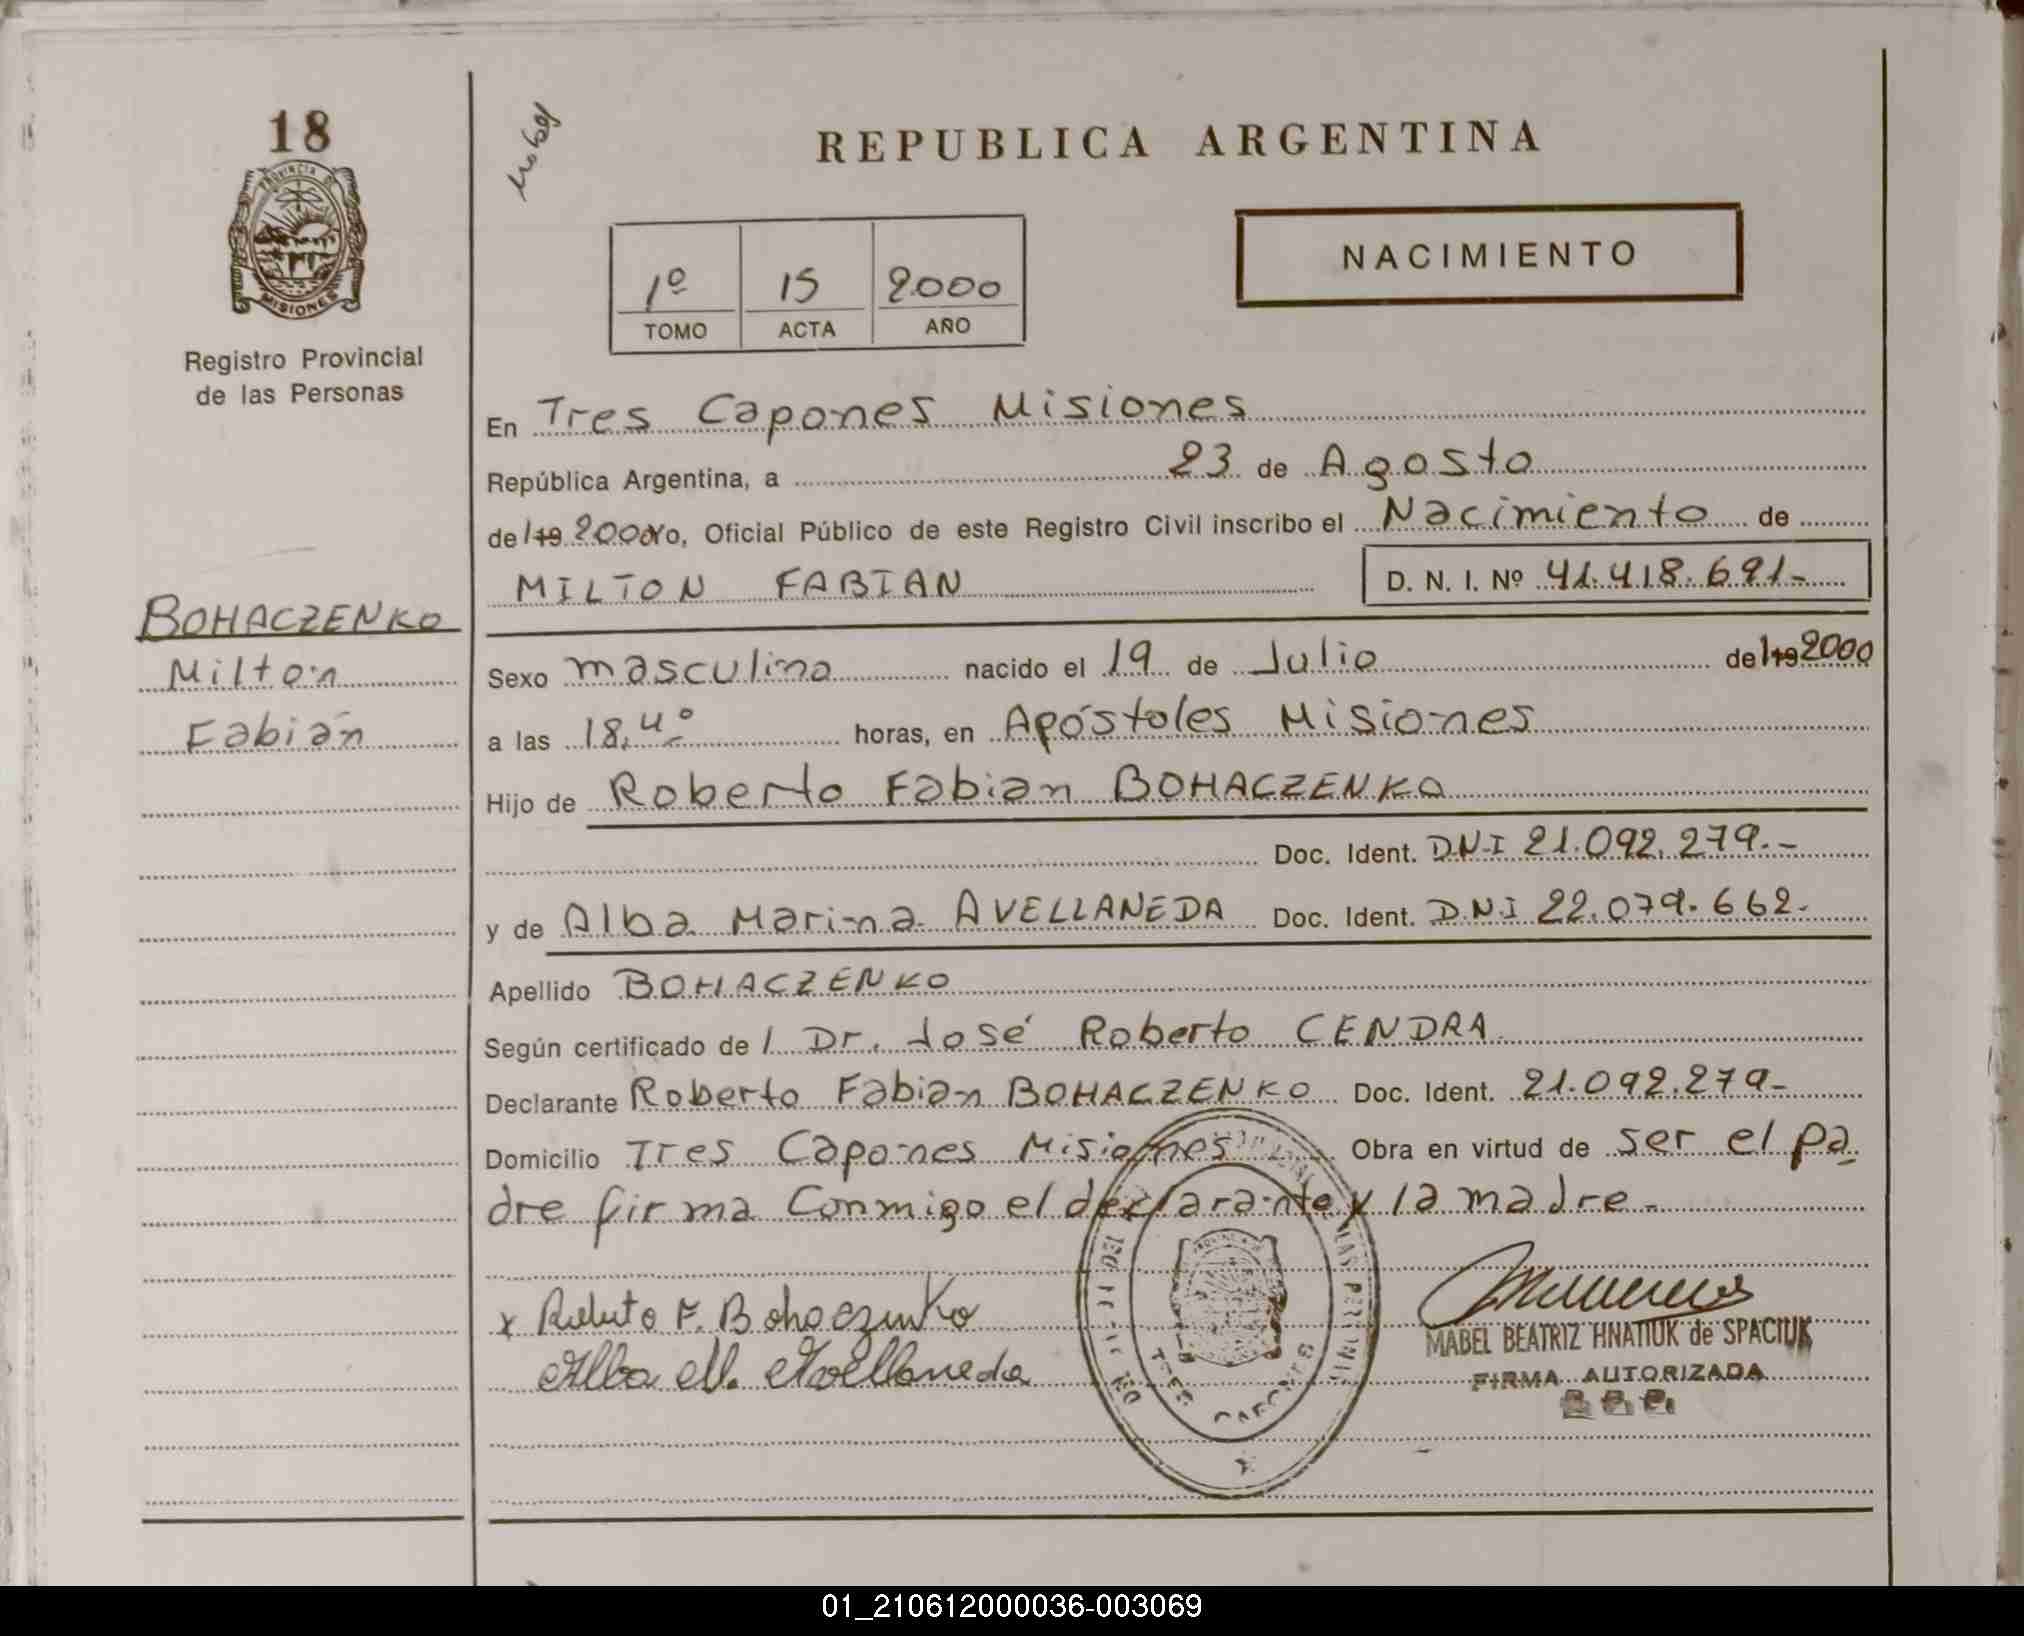 18
PROVINCIA DE
MISIONES
Registro Provincial
de las Personas
BOHACZENKO
Milton
Fabián
REPUBLICA ARGENTINA
NACIMIENTO
1º 15 2000
TOMO ACTA AÑO
En Tres Capones Misiones
República Argentina, a 23 de Agosto
de l 19 2000 yo, Oficial Público de este Registro Civil inscribo el Nacimiento de
MILTON FABIAN D. N. I. Nº 41.418.691-
Sexo masculino nacido el 19 de Julio de l 19 2000
a las 18,40 horas, en Apóstoles Misiones
Hijo de Roberto Fabian BOHACZENKO
Doc. Ident. DNI 21.092.279.-
y de Alba Marina AVELLANEDA Doc. Ident. D.N.I 22.079.662.
Apellido BOHACZENKO
Según certificado de l Dr. José Roberto CENDRA
Declarante Roberto Fabian BOHACZENKO Doc. Ident. 21.092.279-
Domicilio Tres Capones Misiones Obra en virtud de ser el pa
dre firma Conmigo el declarante y la madre.-
x Roberto F. Bohaczenko
Alba M. Avellaneda
TRES CAPONES
MABEL BEATRIZ HNATIUK de SPACIUK
FIRMA AUTORIZADA
01_210612000036-003069